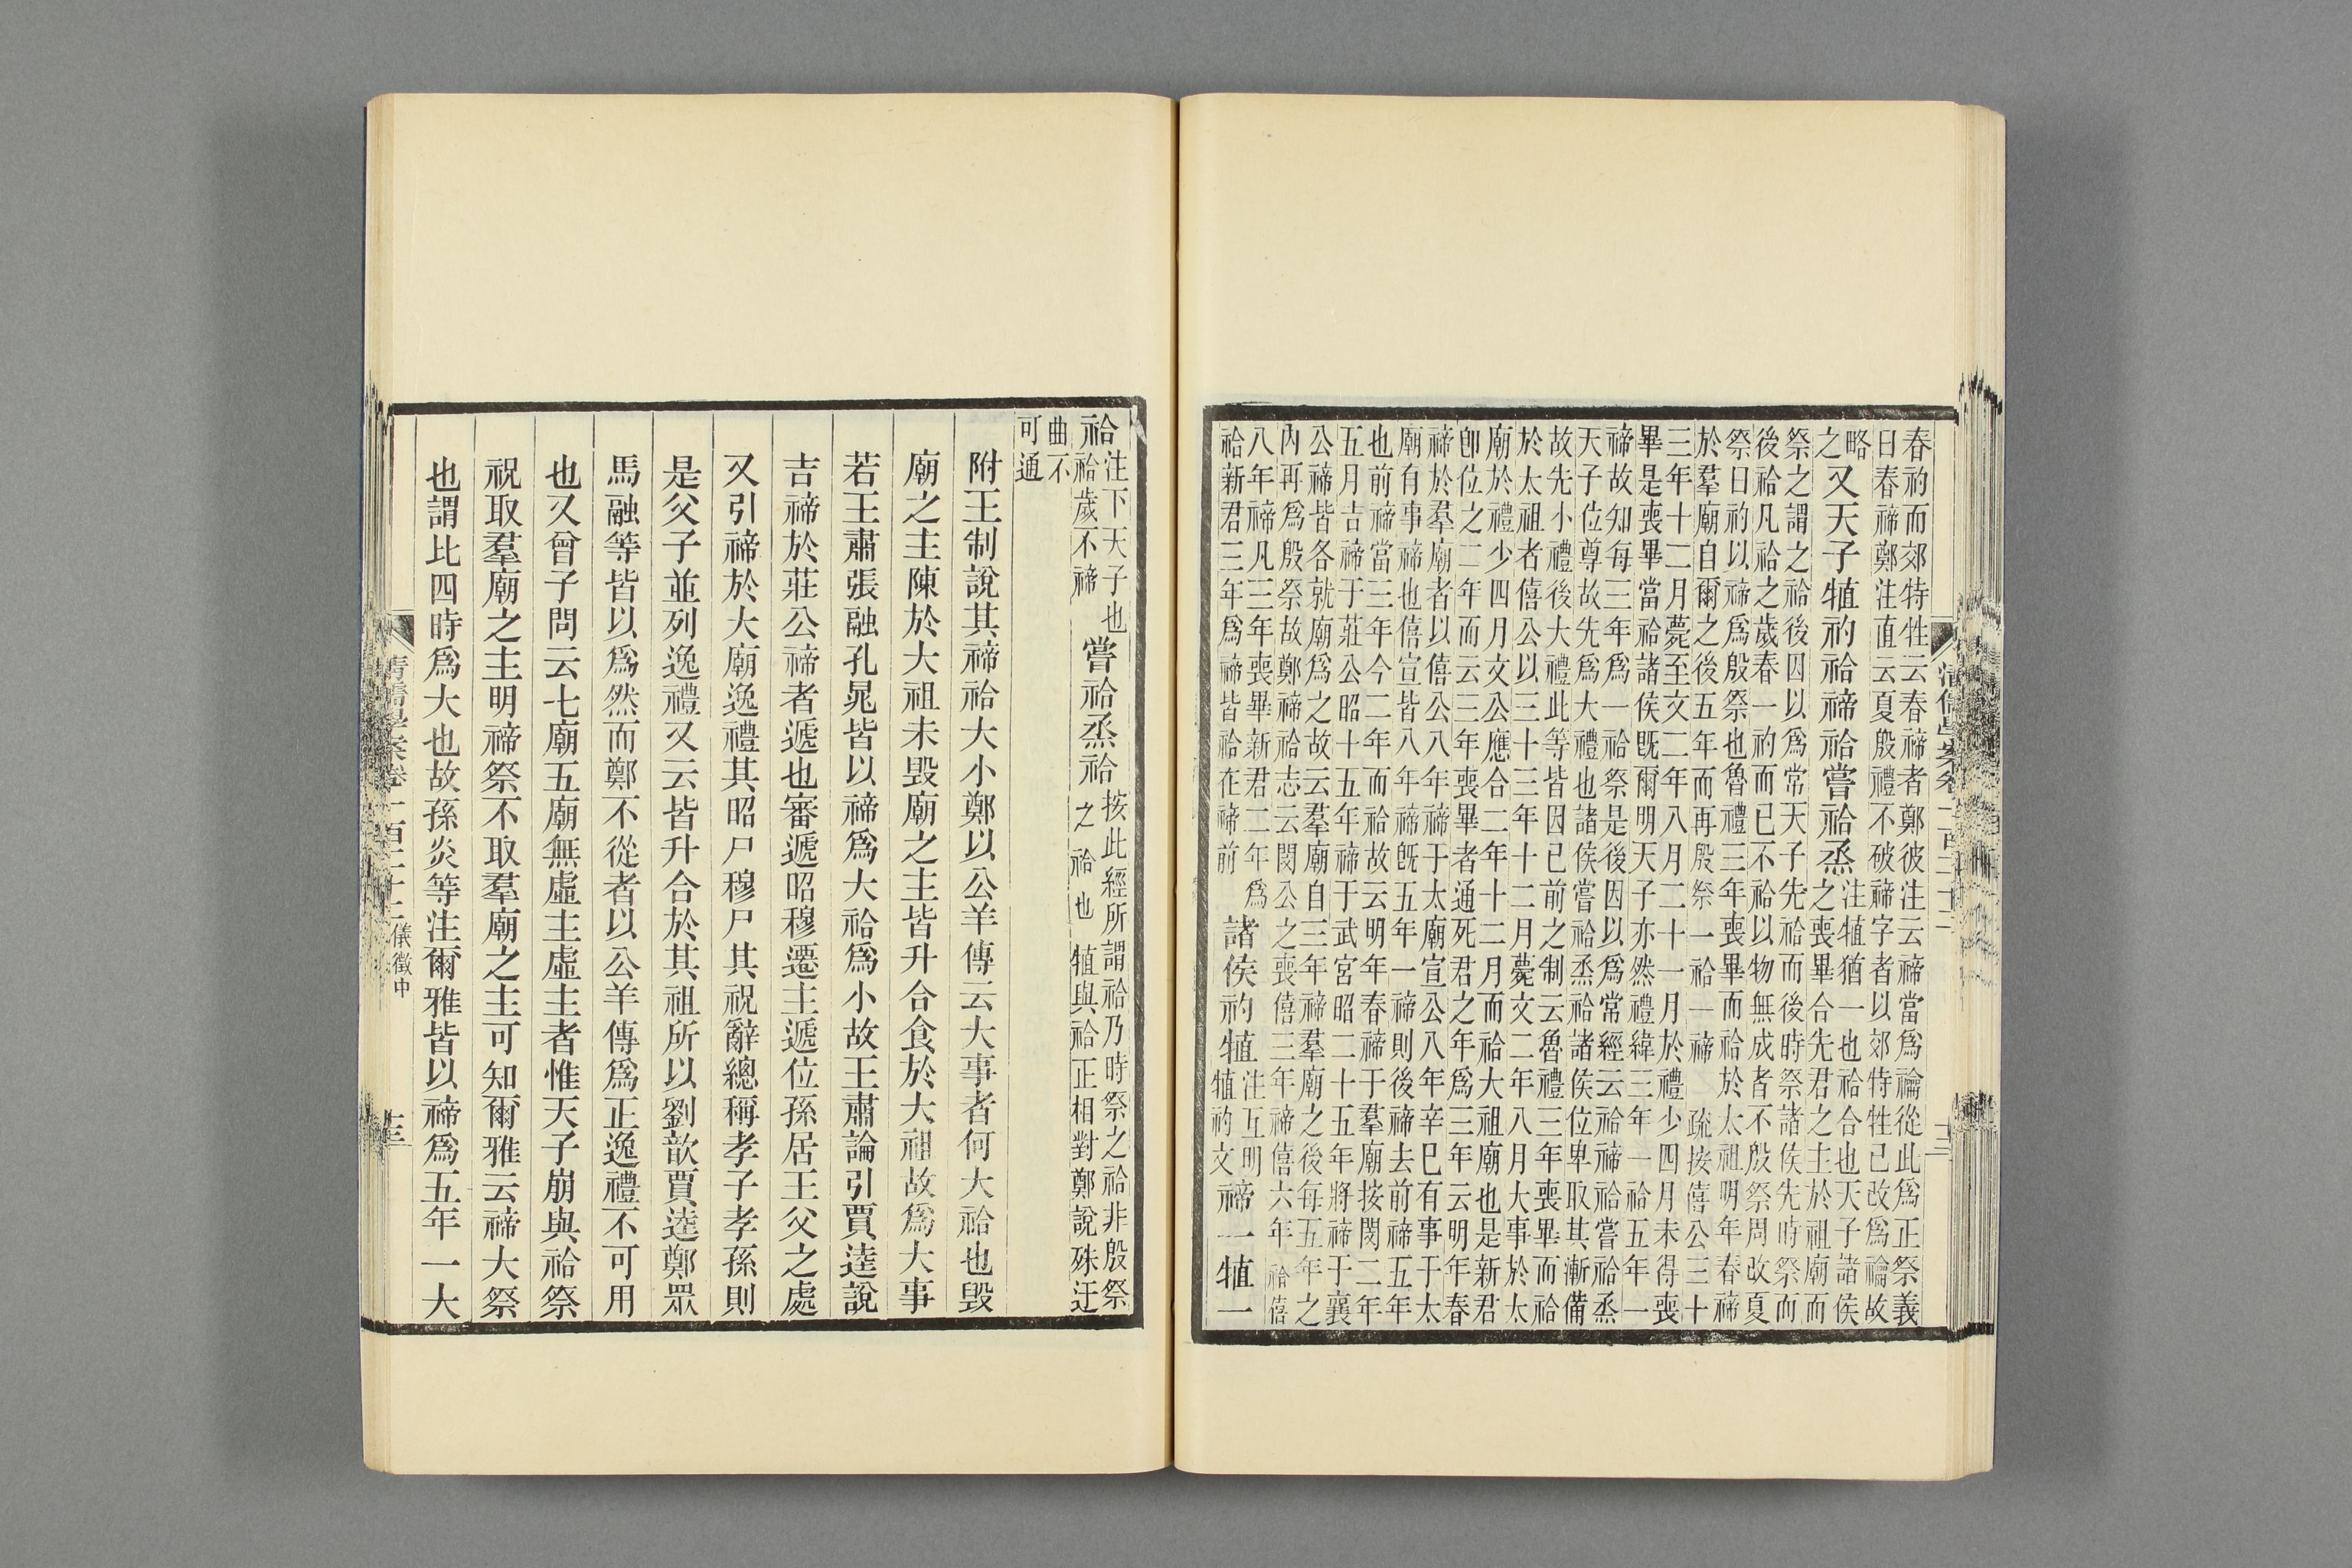 春礿而郊特牲云春禘者鄭彼注云禘當爲禴從此爲正祭義
日春禘鄭注直云夏殷禮不破禘字者以郊特牲已改爲禴故
略
之
又天子犆礿祫禘祫嘗祫烝
注犆猶一也祫合也天子諸侯
之喪畢合先君之主於祖廟而
祭之謂之祫後因以爲常天子先祫而後時祭諸侯先時祭而
後祫凡祫之歲春一礿而已不祫以物無成者不殷祭周改夏
祭曰礿以禘爲殷祭也魯禮三年喪畢而祫於太祖明年春禘
於羣廟自爾之後五年而再殷祭一祫一禘 疏按僖公三十
三年十二月薨至文二年八月二十一月於禮少四月未得喪
畢是喪畢當祫諸侯既爾明天子亦然禮緯三年一祫五年一
禘故知每三年爲一祫祭是後因以爲常經云祫禘祫嘗祫烝
天子位尊故先爲大禮也諸侯嘗祫烝祫諸侯位卑取其漸備
故先小禮後大禮此等皆因已前之制云魯禮三年喪畢而祫
於太祖者僖公以三十三年十二月薨文二年八月大事於太
廟於禮少四月文公應合二年十二月而祫大祖廟也是新君
卽位之二年而云三年喪畢者通死君之年爲三年云明年春
禘於羣廟者以僖公八年禘于太廟宣公八年辛巳有事于太
廟有事禘也僖宣皆八年禘既五年一禘則後禘去前禘五年
也前禘當三年今二年而祫故云明年春禘于羣廟按閔二年
五月吉禘于莊公昭十五年禘于武宮昭二十五年將禘于襄
公禘皆各就廟爲之故云羣廟自三年禘羣廟之後每五年之
內再爲殷祭故鄭禘祫志云閔公之喪僖三年禘僖六年祫僖
八年禘凡三年喪畢新君二年爲
祫新君三年爲禘皆祫在禘前
諸侯礿犆
注互明
犆礿文
禘一犆一
祫
注下天子也
祫歲不禘
嘗祫烝祫
按此經所謂祫乃時祭之祫非殷祭
之祫也 犆與祫正相對鄭說殊迂
曲不
可通
附王制說其禘祫大小鄭以公羊傳云大事者何大祫也毀
廟之主陳於大祖未毀廟之主皆升合食於大祖故爲大事
若王肅張融孔晁皆以禘爲大祫爲小故王肅論引賈逵說
吉禘於莊公禘者遞也審遞昭穆遷主遞位孫居王父之處
又引禘於大廟逸禮其昭尸穆尸其祝辭總稱孝子孝孫則
是父子並列逸禮又云皆升合於其祖所以劉歆賈逵鄭眾
馬融等皆以爲然而鄭不從者以公羊傳爲正逸禮不可用
也又曾子問云七廟五廟無虛主虛主者惟天子崩與祫祭
祝取羣廟之主明禘祭不取羣廟之主可知爾雅云禘大祭
也謂比四時爲大也故孫炎等注爾雅皆以禘爲五年一大
儀徵中